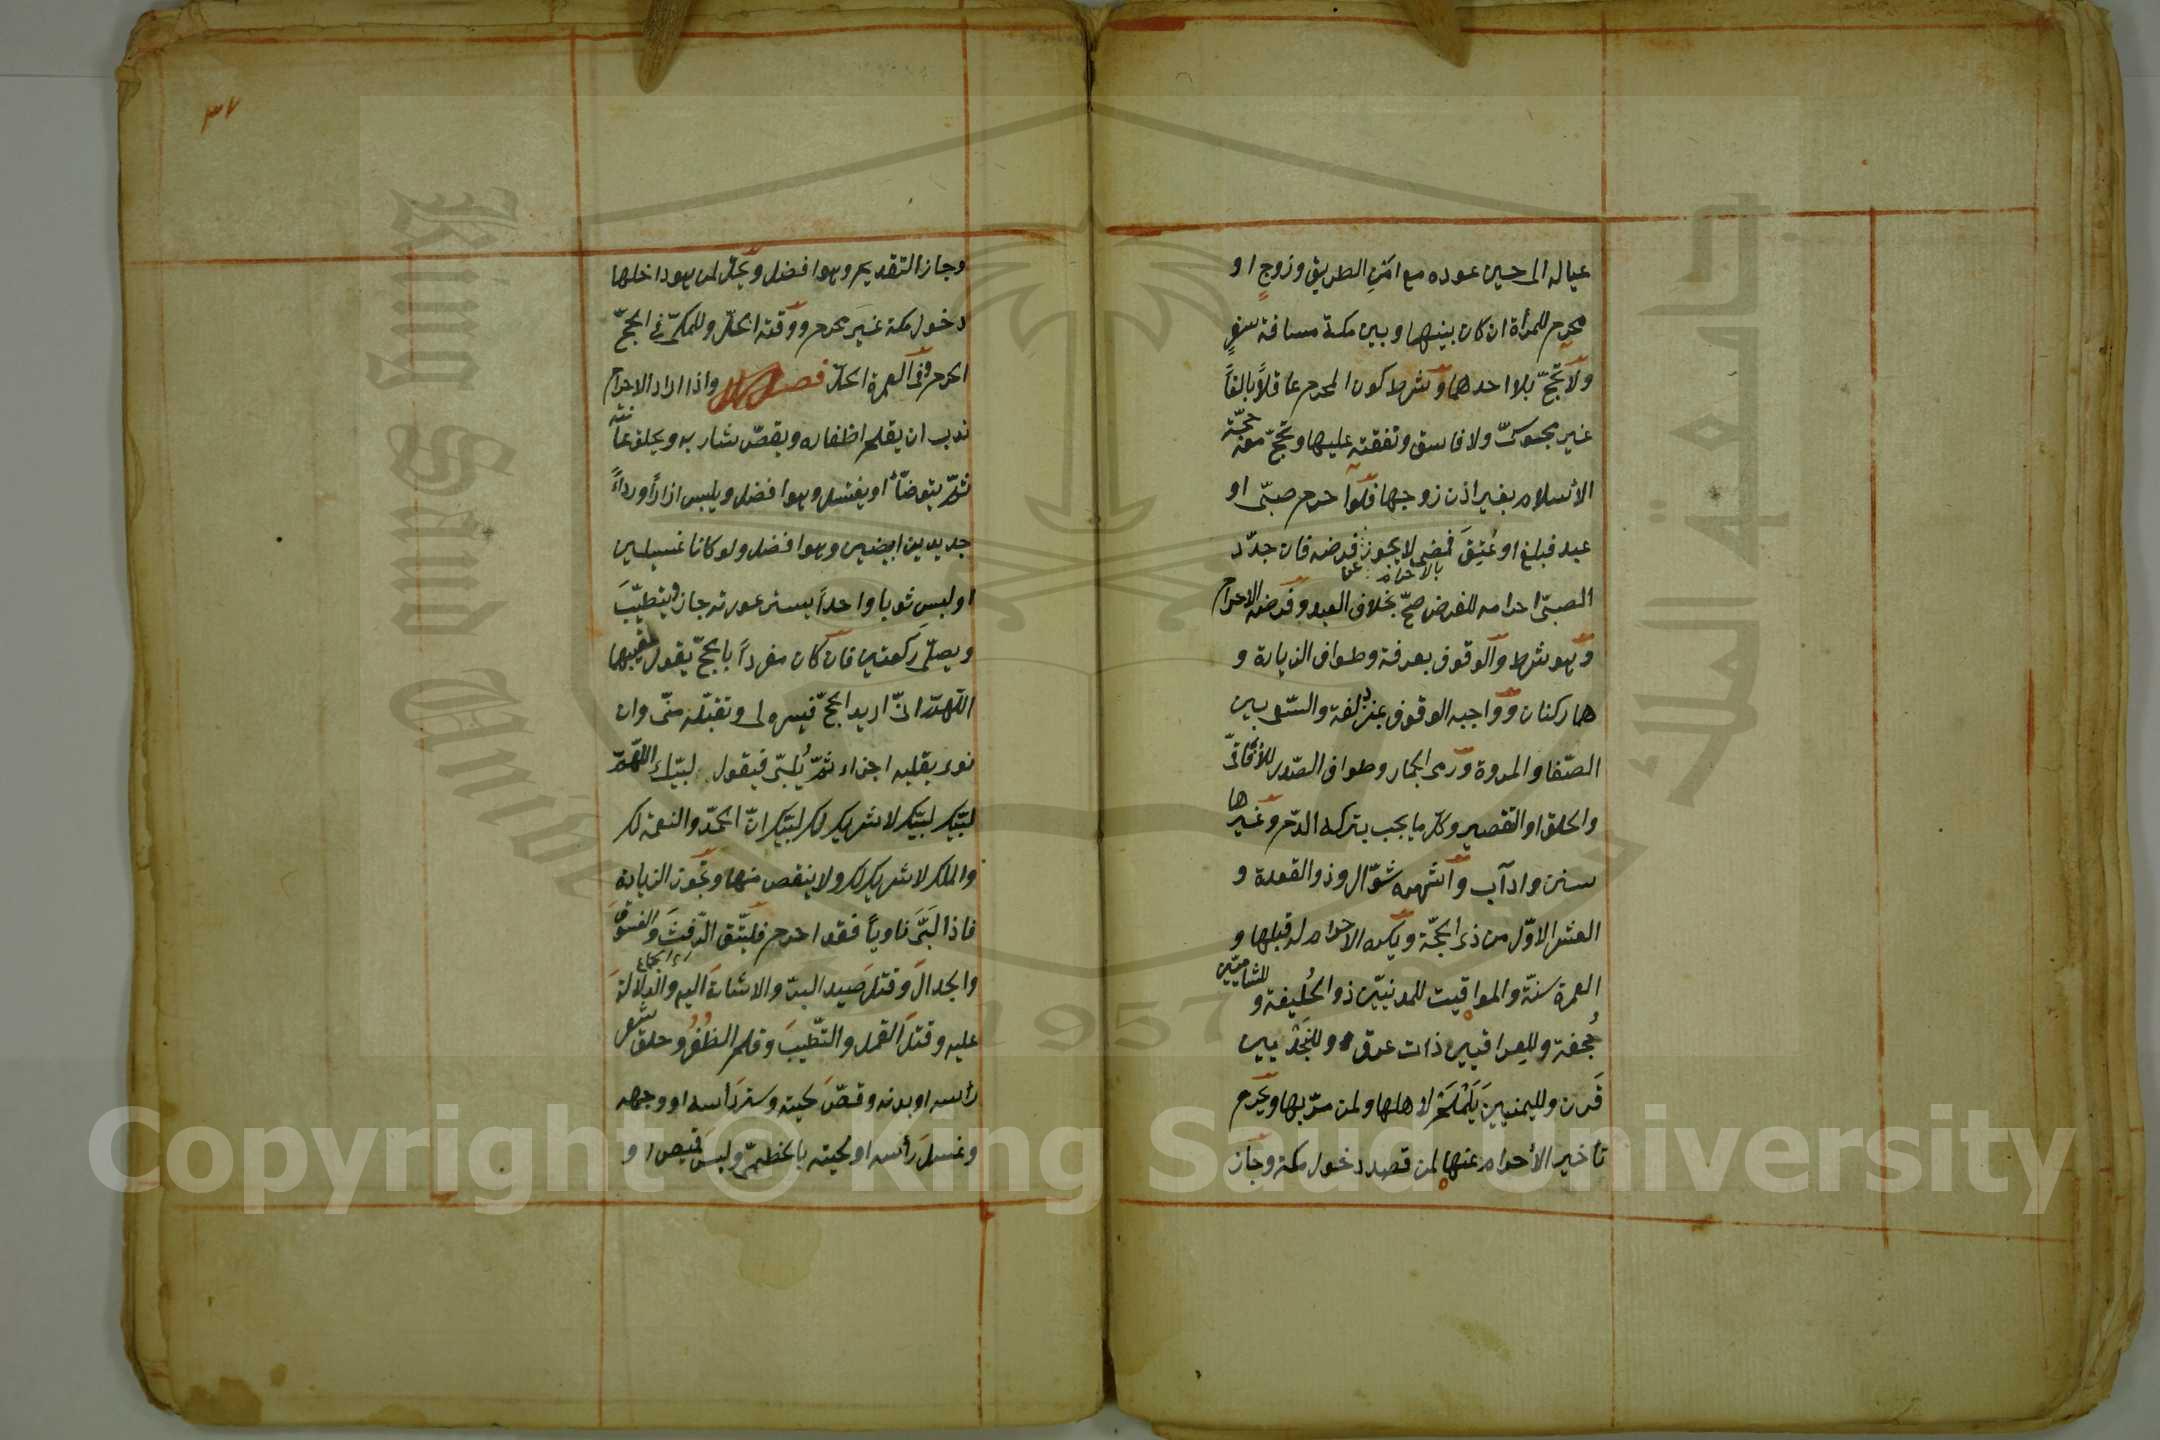 عياله الى حين عوده مع امن الطريق وزوج او
محرم للمرأة ان كان بينها وبين مكة مسافة سفر
ولا تحج بلا احدهما وشرط كون المحرم عاقلاً بالغاً
غير مجوسىّ ولا فاسق ونفقته عليها وتحجّ معه حجّة
الاسلام بغير اذن زوجها فلو احرم صبىّ او
عبد فبلغ او عُتِقَ فمضى لا يجوز عن فرضه فان جدّد
بالاحرام
الصبىّ احرامه للفرض صحّ بخلاف العبد وفرضه الاحرام
وهو شرط والوقوف بعرفة وطواف الزيارة و
هما ركنان وواجبه الوقوف بمزدلفة والسّعى بين
الصّفا والمروة ورمى الجمار وطواف الصّدر للآفاقىّ
والحلق او التقصير وكل ما يجب بتركه الدّم وغيرها
سنن وادآب واشهره شوّال وذو القعدة و
العشر الاوّل من ذى الحجّة ويكره الاحرام له قبلها و
العمرة سنّة والمواقيت للمدنيّين ذو الحُليفة و للشاميّين
جُحفة وللعراقيين ذات عرق وللنَجْديين
قَرن ولليمنيين يَلَمْلَم لاهلها ولمن مرّ بها ويحرم
تأخير الأحرام عنها لمن قصد دخول مكة وجاز
٣٧
وجاز التقديم وهو افضل ويحلّ لمن هو داخلها
دخول مكة غير محرم ووقته الحلّ وللمكىّ فى الحجّ
الحرم وفى العمرة الحلّ فصل واذا اراد الاحرام
ندب ان يقلم اظفاره ويقصّ شاربه ويحلق عانته
ثمّ يتوضّأ او يغتسل وهو افضل ويلبس ازاراً ورداءً
جديدين ابيضين وهو افضل ولو كانا غسيلين
او لبس ثوبا واحداً يستر عورته جاز ويتطيّبَ
ويصلّى ركعتين فان كان مفرداً بالحجّ يقول عقيبها
اللّهمّ انىّ اريد الحجّ فيسره لى وتقبّله منّى وان
نوى بقلبه اجزاه ثمّ يُلبّى فيقول لبّيك اللّهمّ
لبّيك لبّيك لا شريك لك لبّيك انّ الحمد والنعمة لك
والملك لا شريك لك ولا ينقص منها وتجوز الزيادة
فاذا لبَّى ناوياً فقد احرم فليتّق الرّفثَ والفسوقَ
اى الجماع
والجدالَ وقتلَ صيد البرّ والاشارة اليه والدلالة
عليه وقتلَ القمل والتّطيبَ وقلم الظُفُر وحلق شعر
رأسه او بدنه وقصّ لحيته وستر رأسه او وجهه
وغسلَ رأسه او لحيته بالخطمىّ ولبس قميص او
King Saud University
جامعة الملك
1957
Copyright © King Saud University